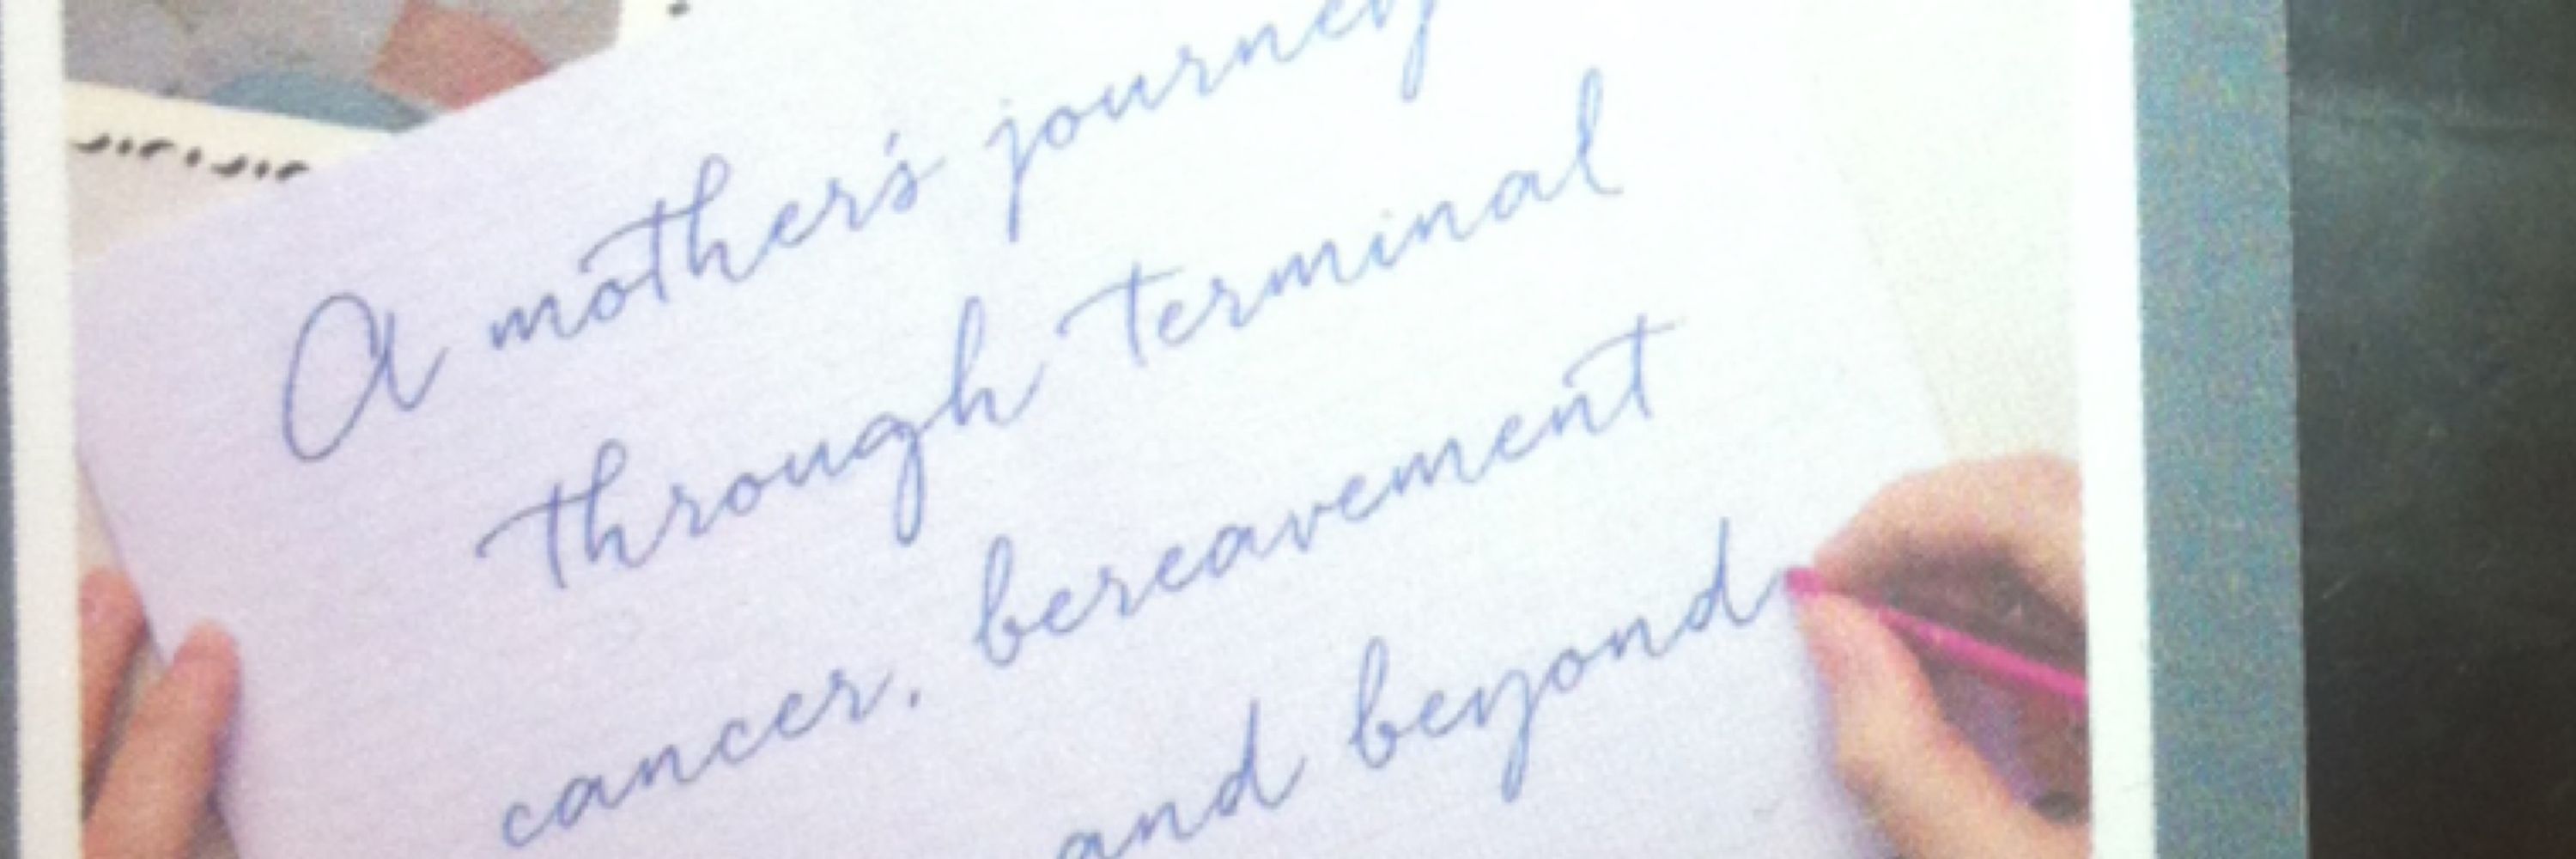 A mother's journey
through terminal
cancer, bereavement
and beyond